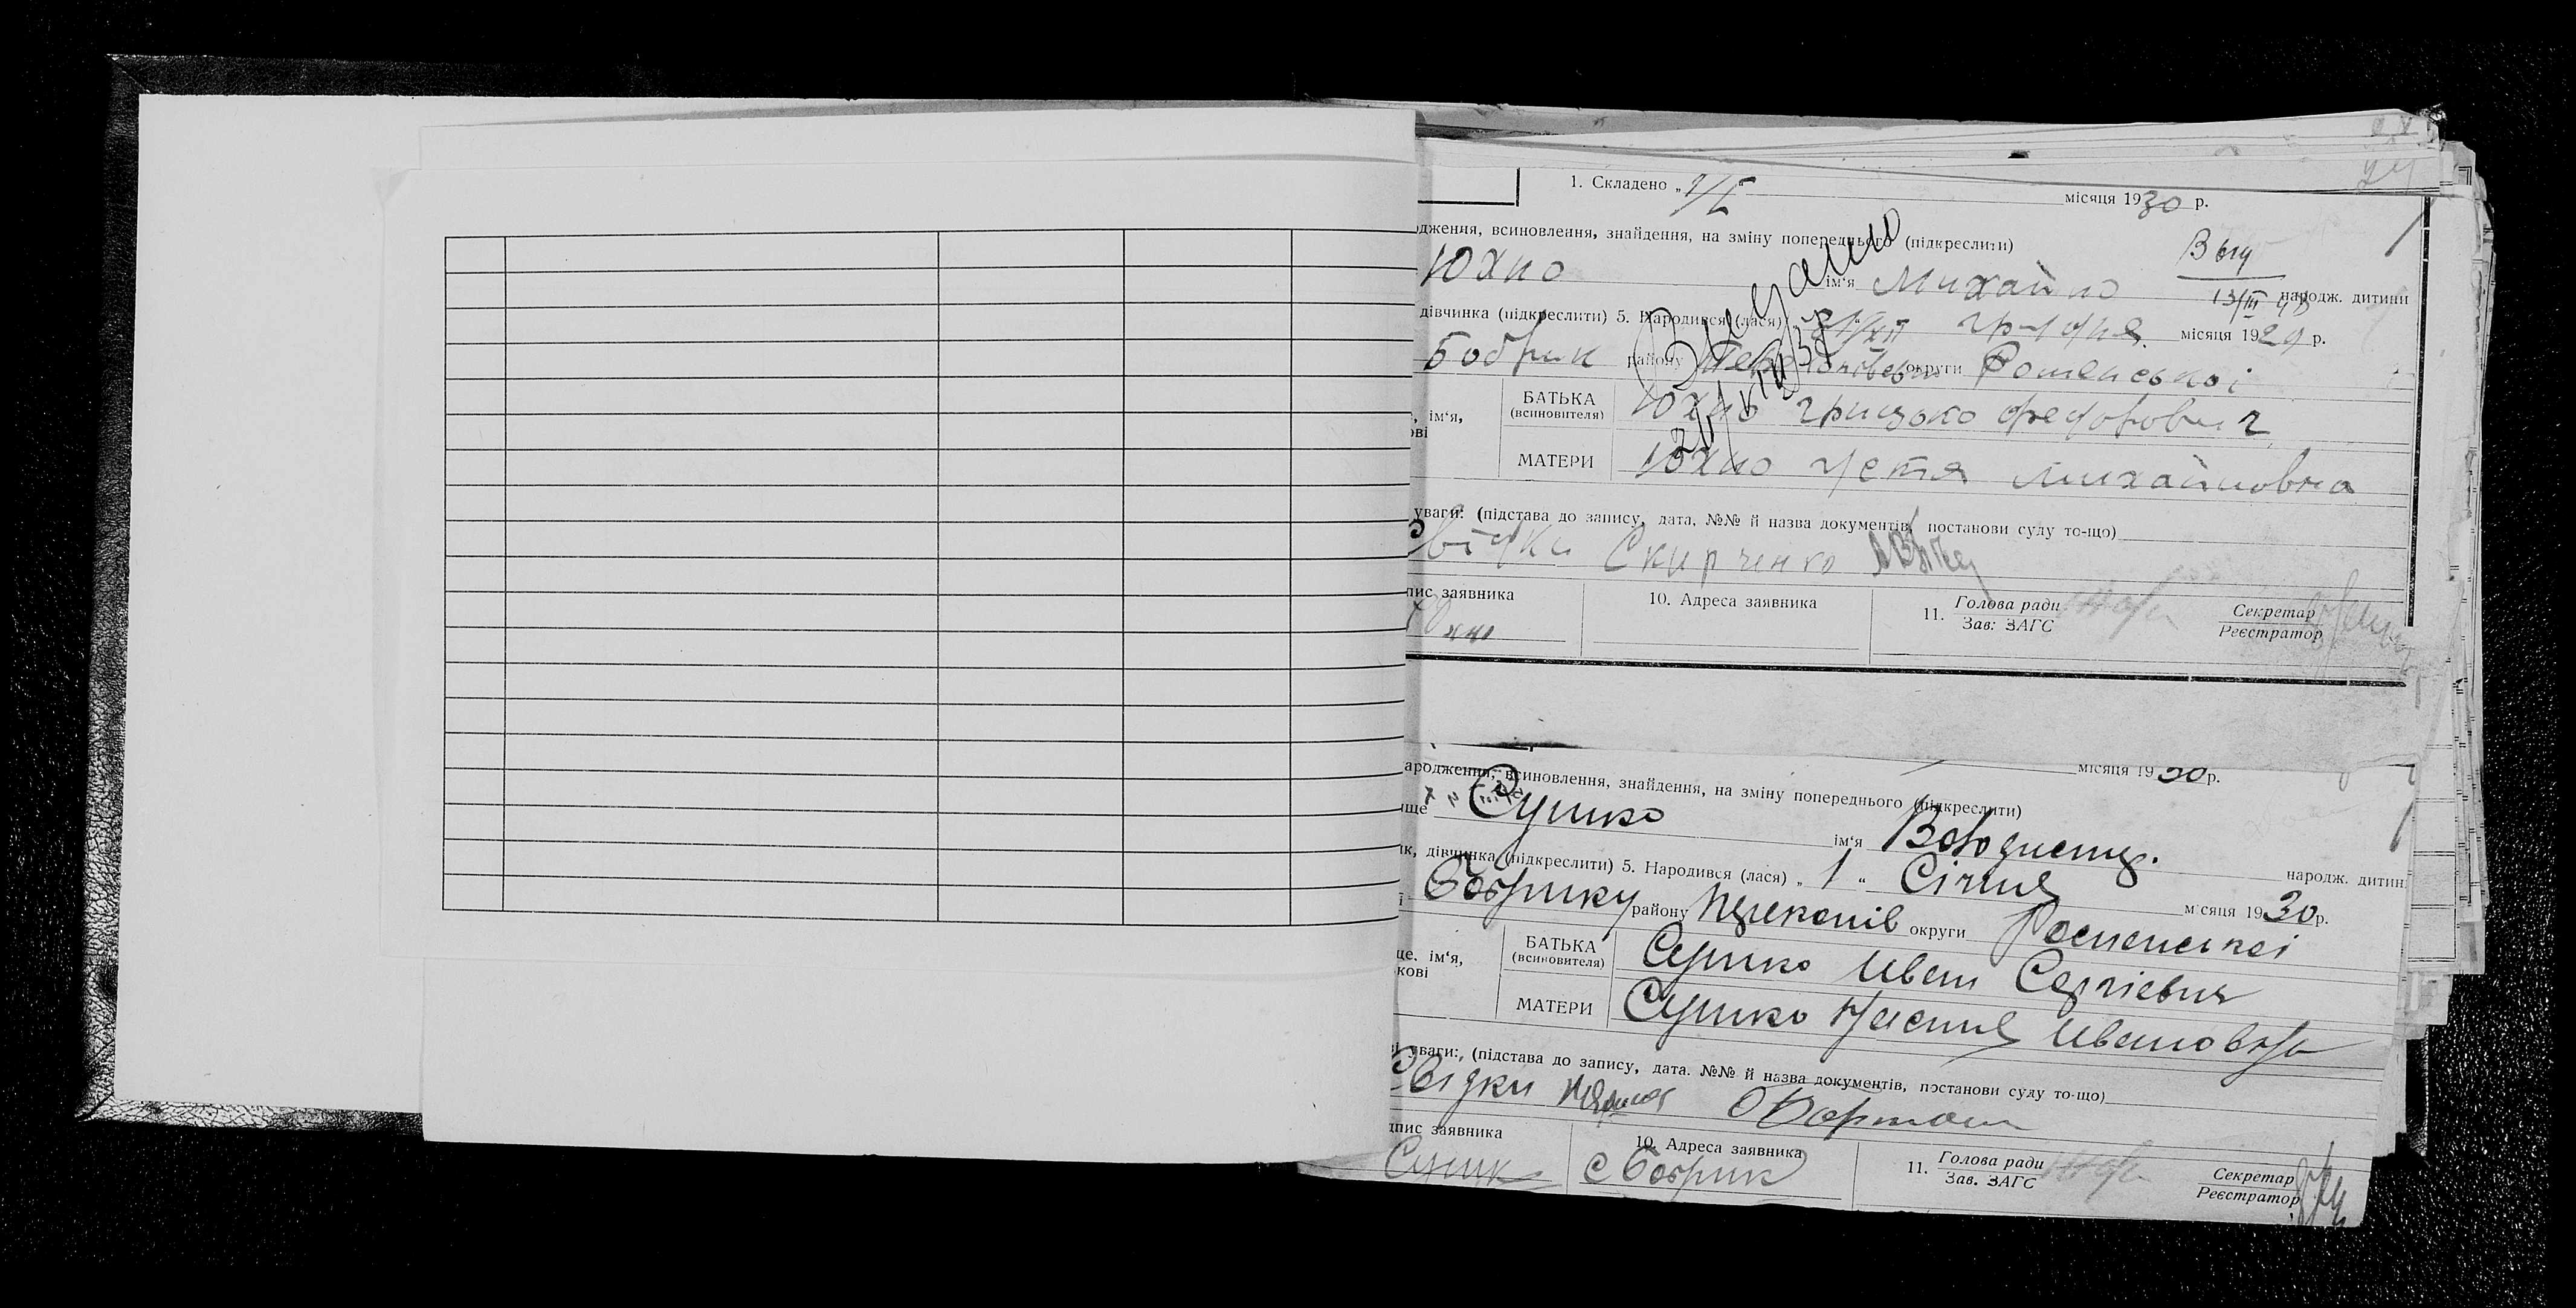 1. Складено „ 1/I місяця 1930 р.
одження, всиновлення, знайдення, на зміну попереднього (підкреслити)
Юхно ім'я Михайло народж. дитини
Выд
13/III
Видано
дівчинка (підкреслити) 5. Народився (лася) 21/XII грудня місяця 1929 р.
Бобрик району округи Роменської
, ім'я,
ові
БАТЬКА Юхно Грицько Федорович
(всиновителя)
МАТЕРИ Юхно Устя Михайловна
уваги: (підстава до запису, дата, №№ й назва документів, постанови суду то-що)
Свідки Скирченко
пис заявника 10. Адреса заявника 11. Голова ради Секретар
Зав: ЗАГС Реєстратор
Юхно
місяця 1930 р.
ародження, всиновлення, знайдення, на зміну попереднього (підкреслити)
ище Сушко ім'я Володимир народж. дитин
ик, дівчинка (підкреслити) 5. Народився (лася) „ 1 “ Січня місяця 1930 р.
і Бобрику району округи Роменської
ще, ім'я,
кові
БАТЬКА Сушко Иван Сергієвич
(всиновителя)
МАТЕРИ Сушко Ивановна
і уваги: (підстава до запису, дата. №№ й назва документів, постанови суду то-що)
Свідки
дпис заявника 10. Адреса заявника 11. Голова ради Секретар
Зав. ЗАГС Реєстратор
Сушк с Бобрик